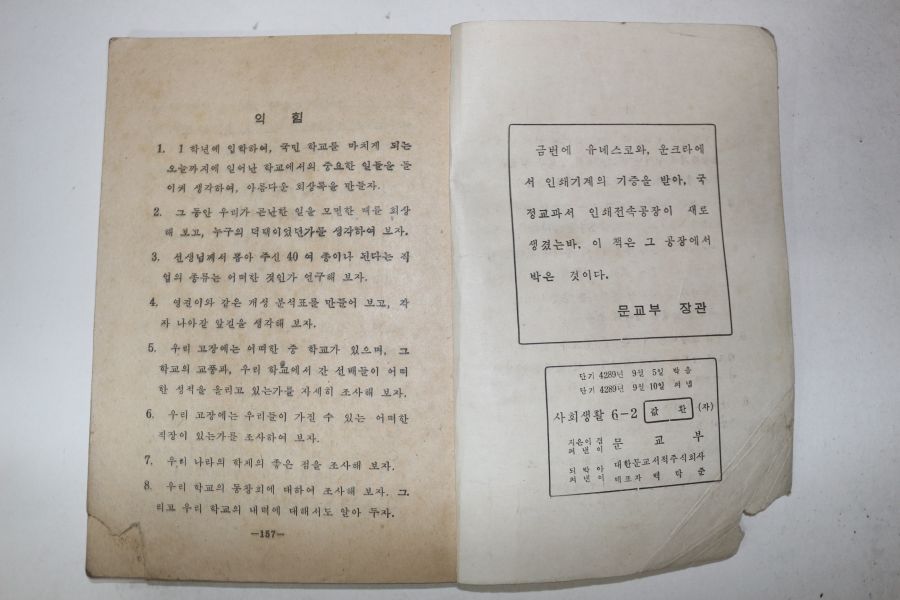 익 힘
1. 1 학년에 입학하여, 국민 학교를 마치게 되는
오늘까지에 일어난 학교에서의 중요한 일들을 돌
이켜 생각하여, 아름다운 회상록을 만들자.
2. 그 동안 우리가 곤난한 일을 모면한 때를 회상
해 보고, 누구의 덕택이었던가를 생각하여 보자.
3. 선생님께서 뽑아 주신 40 여 종이나 된다는 직
업의 종류는 어떠한 것인가 연구해 보자.
4. 영권이와 같은 개성 분석표를 만들어 보고, 각
자 나아갈 앞길을 생각해 보자.
5. 우리 고장에는 어떠한 중 학교가 있으며, 그
학교의 교풍과, 우리 학교에서 간 선배들이 어떠
한 성적을 올리고 있는가를 자세히 조사해 보자.
6. 우리 고장에는 우리들이 가질 수 있는 어떠한
직장이 있는가를 조사하여 보자.
7. 우리 나라의 학제의 좋은 점을 조사해 보자.
8. 우리 학교의 동창회에 대하여 조사해 보자. 그
리고 우리 학교의 내력에 대해서도 알아 두자.
—157—
금번에 유네스코와, 운크라에
서 인쇄기계의 기증을 받아, 국
정교과서 인쇄전속공장이 새로
생겼는바, 이 책은 그 공장에서
박은 것이다.
문교부 장관
단기 4289년 9월 5일 박음
단기 4289년 9월 10일 펴냄
사회생활 6-2 값 환 (자)
지은이 겸 펴낸이 문교부
되박아 펴낸이 대한문교서적주식회사
대표자 백낙준